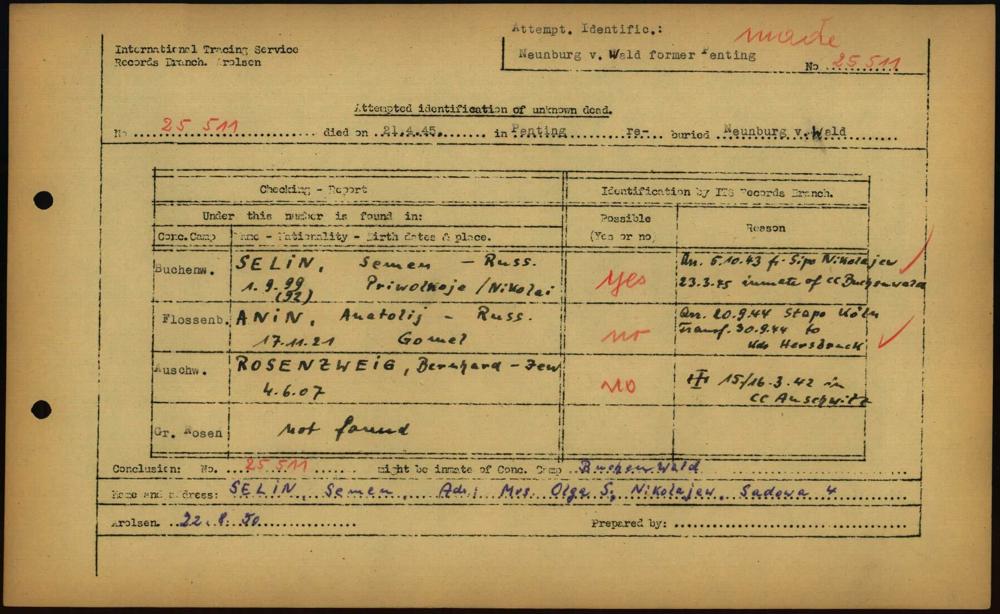 Attempt. Identific.: made
International Tracing Service
Records Branch. Arolsen
Neunburg v. Wald former Penting
No 25511
Attempted identification of unknown dead.
No 25 511 died on 21.4.45. in Penting re- buried Neunburg v. Wald
Checking - Report
Identification by ITS Records Branch.
Under this number is found in:
Possible
(Yes or no)
Reason
Conc.Camp Name - Nationality - Birth dates & place.
Buchenw. SELIN, Semen - Russ. yes Arr. 5.10.43 fr. Sipo Nikolajew
1.9.99 Priwolkoje / Nikolai 23.3.45 inmate of CC Buchenwald
(92)
Flossenb. ANIN, Anatolij - Russ. no Arr. 20.9.44 Stapo Köln
17.11.21 Gomel Transf. 30.9.44 to
Kdo Hersbruck
Auschw. ROSENZWEIG, Bernhard - Jew no 15/16.3.42 in
4.6.07 CC Auschwitz
Gr. Rosen not found
Conclusion: No. 25 511 might be inmate of Conc. Camp Buchenwald
Name and address: SELIN, Semen, Adr: Mrs. Olga S., Nikolajew, Sadowa 4
Arolsen. 22.8.50 Prepared by: